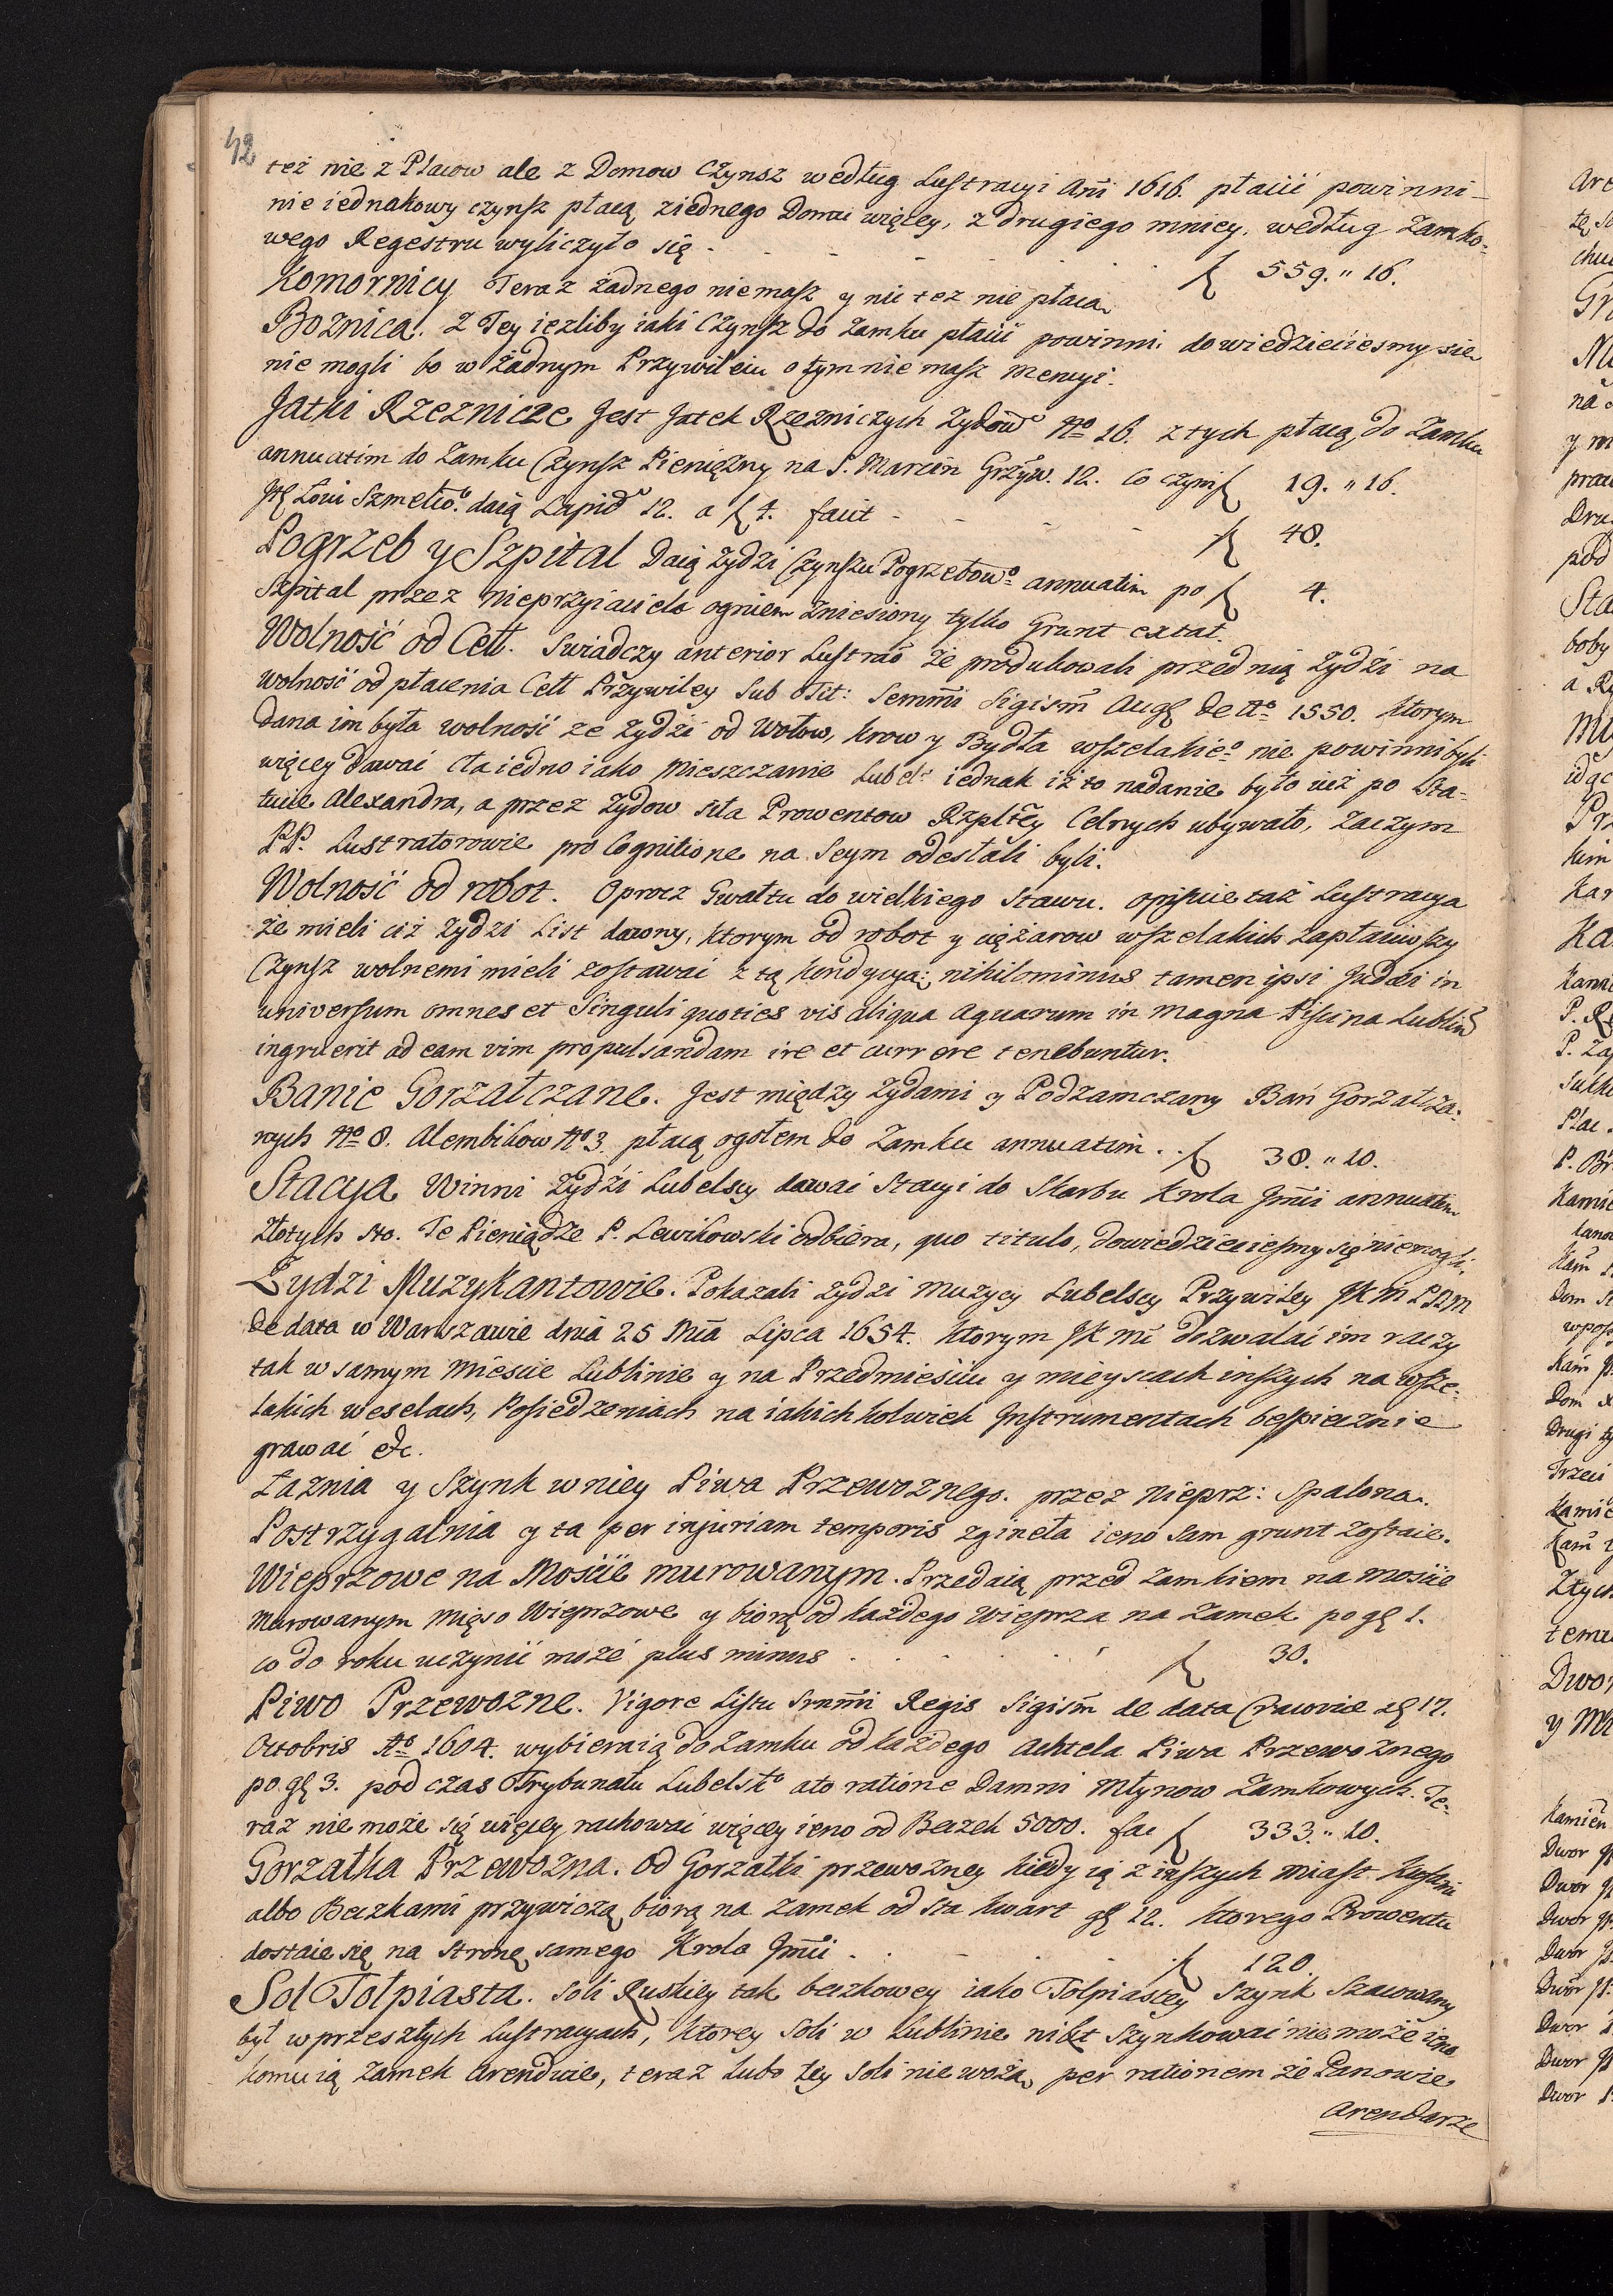 42
też nie z Placow ale z Domow Czynsz według Lustracyi Ani 1616. płacić powinni
nie iednakowy czynsz płacą z iednego Domu więcey, z drugiego mniey. według Zamko-
wego Regestru wyliczyło się . 559. " 16.
Komornicy Teraz żadnego niemasz y nic też nie płacą
Boznica. z Tey iezliby iaki Czynsz do Zamku płacić powinni dowiedzieciesmy sie
nie mogli bo w żadnym Przywileiu o tym nie masz mencyi.
Jatki Rzeznicze Jest Jatek Rzezniczych Zydow No 16. z tych płacą do Zamku
annuatim do Zamku Czynsz Pieniężny na S. Marcin Grzyw. 12. co czyni 19. " 16.
Łoiu Szmelco. daią Lapid 12. a f 4. facit - 48.
Pogrzeb y Szpital Daią Zydzi Czynszu Pogrzebowo annuatim po f 4.
Szpital przez nieprzyiaciela ogniem zniesiony tylko Grunt extat.
Wolność od Cell. Swiadczy anterior Lustrao że produkowali przed nią Zydzi na
wolność od płacenia Cell Przywiley sub Tit: Semmi Sigism Aug de Ao 1550. ktorym
dana im była wolność ze Zydzi od Wołow, krow y Bydła wszelakieo nie powinni byli
więcey dawać Cła iedno iako Mieszczanie Lubel: iednak iż to nadanie było iuż po Sta-
tucie Alexandra, a przez Zydow siła Prowentow Rzpltey Celnych ubywało, zaczym
PP. Lustratorowie pro Cognitione na Seym odesłali byli.
Wolność od robot. Oprocz Gwałtu do wielkiego stawu. opisuie taż Lustracya
że mieli też Zydzi List dawny, ktorym od robot y ciężarow wszelakich zapłaciwszy
Czynsz wolnemi mieli zostawać z tą kondycyą: nihilominus tamen ipsi Judæi in
universum omnes et singuli quoties vis aliqua aquarum in magna Piscina Lublin
ingruerit ad eam vim propulsandam ire et currere tenebuntur.
Banie Gorzałczane. Jest między Zydami y Podzamczany Bań Gorzałcza-
nych No 8. Alembikow No 3. płacą ogołem do Zamku annuatim . . f 38. " 10.
Stacya Winni Zydzi Lubelscy dawać Stacyi do Skarbu Krola Jmci annuatim
Złotych sto. Te Pieniądze P. Lewikowski odbiera, quo titulo, dowiedzieciesmy się niemogli.
Zydzi Muzykantowie. Pokazali Zydzi Muzycy Lubelscy Przywiley JKM PNM
de data w Warszawie dnia 25 Mca Lipca 1654. ktorym JK Mc dozwalać im raczy
tak w samym Miescie Lublinie y na Przedmiesciu y mieyscach inszych na wsze-
lakich weselach, Posiedzeniach na iakichkolwiek Instrumentach bespiecznie
grawać &c.
Łaznia y Szynk w niey Piwa Przewoznego. przez Nieprz: Spalona.
Postrzygalnia y ta per injuriam temporis zgineła ieno sam grunt zostaie.
Wieprzowe na Moście murowanym. Przedaią przed Zamkiem na moscie
Murowanym Mięso Wieprzowe y biorą od każdego Wieprza na Zamek po gł 1.
co do roku uczynić może plus minus . . . . . f 30.
Piwo Przewozne. Vigore Listu Srnmi Regis Sigism de data Cracovie 17.
Octobris Ao 1604. wybieraią do Zamku od każdego Achtela Piwa Przewoznego
po gł 3. pod czas Trybunału Lubelsko ato ratione Damni Młynow Zamkowych. Te-
raz nie może się więcey rachować więcey ieno od Beczek 5000. fac f 333. " 10.
Gorzałka Przewozna. od Gorzałki przewozney kiedy ią z inszych Miast
albo Beczkami przywiozą biorą na Zamek od sta kwart gł 12. ktorego Prowentu
dostaie się na stronę samego Krola Jmci . . - . . f 120.
Sol Tołpiasta. Soli Ruskiey tak beczkowey iako Tołpiastey Szynk Szacowany
był w przeszłych Lustracyach, ktorey Soli w Lublinie nikt szynkować nie może ieno
komu ią Zamek Arenduie, teraz lubo tey Soli nie wożą per rationem że Panowie
Arendarze